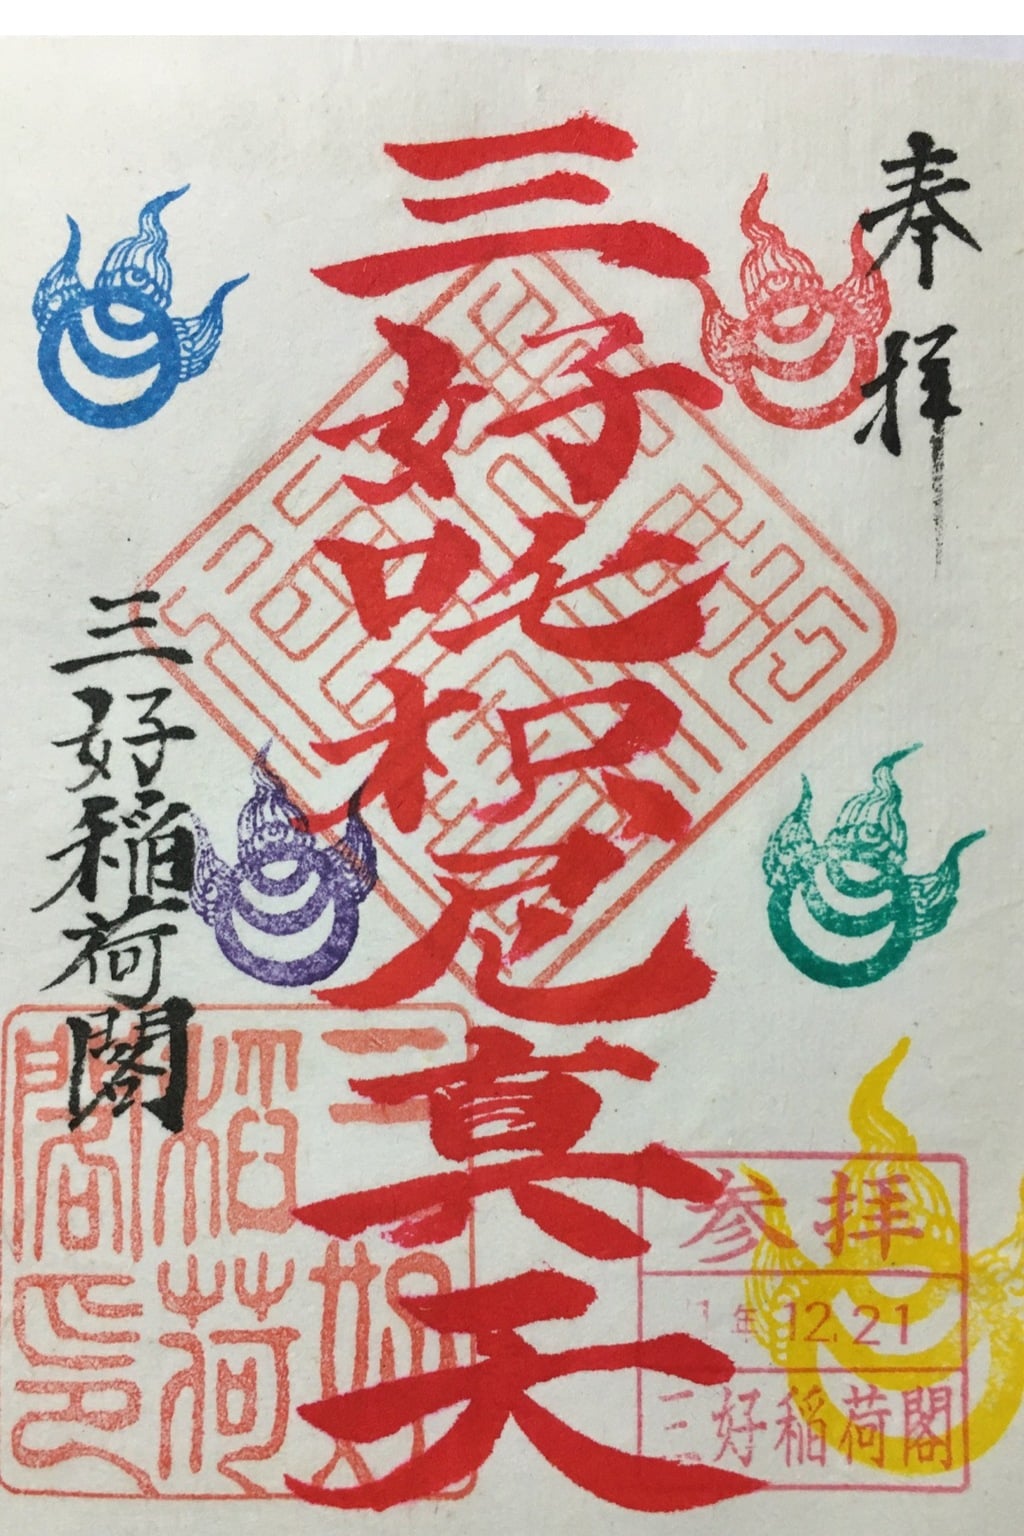 奉拝
三好吒枳尼真天
三好稲荷閣
三好稲荷閣印
参拝
1年 12.21
三好稲荷閣